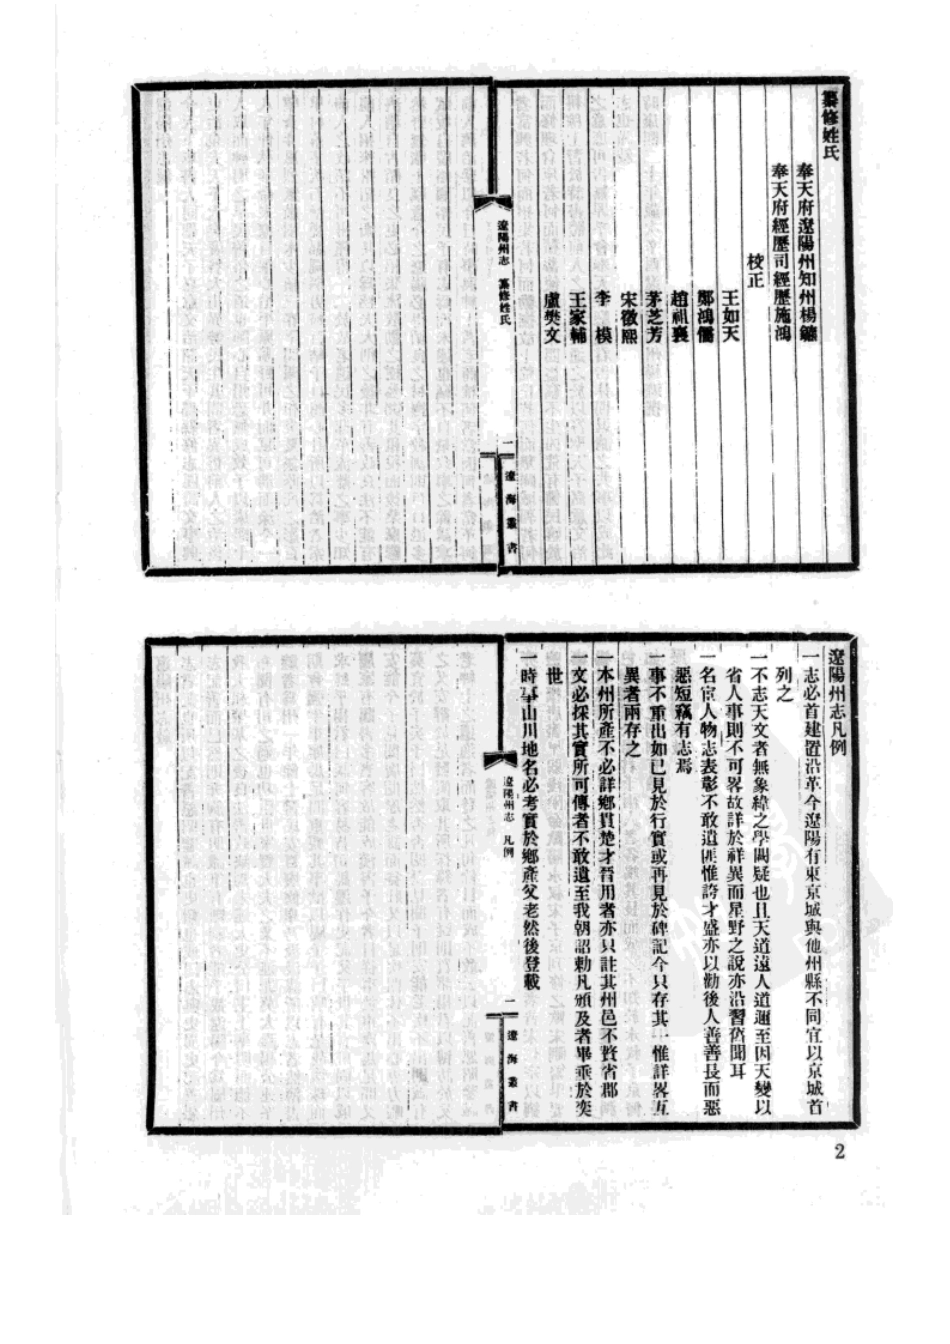 纂修姓氏
奉天府遼陽州知州楊鑣
奉天府經歷司經歷施鴻
校正
王如天
鄭鴻儒
趙祖襄
茅芝芳
宋徵熙
李模
王家輔
盧獎文
遼陽州志 纂修姓氏 一 遼海叢書
遼陽州志凡例
一志必首建置沿革今遼陽有東京城與他州縣不同宜以京城首
列之
一不志天文者無象緯之學闕疑也且天道遠人道邇至因天變以
省人事則不可畧故詳於祥異而星野之說亦沿習舊聞耳
一名宦人物志表彰不敢遺匪惟誇才盛亦以勸後人善善長而惡
惡短竊有志焉
一事不重出如已見於行實或再見於碑記今只存其一惟詳畧互
異者兩存之
一本州所產不必詳鄉貫楚才晉用者亦只註其州邑不贅省郡
一文必採其實所可傳者不敢遺至我朝詔勅凡頒及者畢垂於奕
世
一時事山川地名必考實於鄉產父老然後登載
遼陽州志 凡例 二 遼海叢書
2